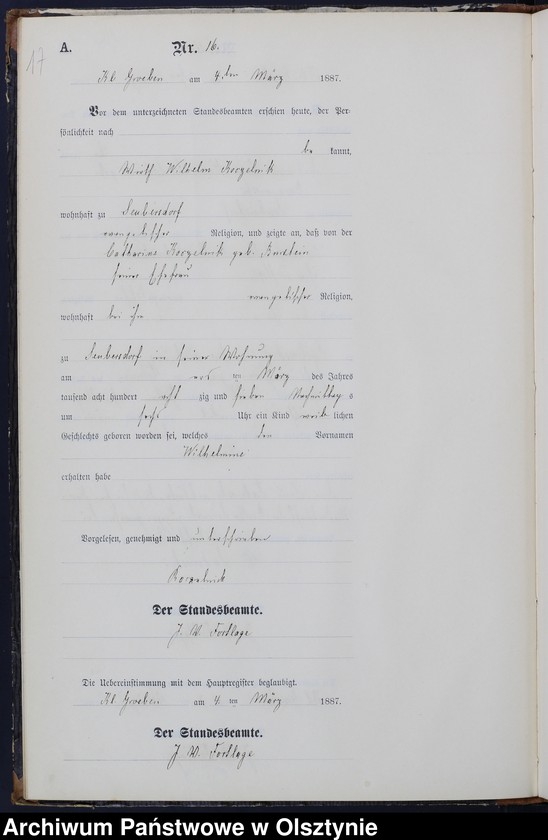 17
A. Nr. 16.
Kl Groeben am 4. ten März 1887.
Vor dem unterzeichneten Standesbeamten erschien heute, der Per-
sönlichkeit nach
be kannt,
Wirth Wilhelm Korzelnik
wohnhaft zu
evangelischer Religion, und zeigte an, daß von der
Catharine Korzelnik geb.
seiner Ehefrau
evangelischer Religion,
wohnhaft bei ihm
zu in seiner Wohnung
am ten März des Jahres
tausend acht hundert acht zig und sieben Nachmittags
um sechs Uhr ein Kind weib lichen
Geschlechts geboren worden sei, welches den Vornamen
Wilhelmine
erhalten habe
Vorgelesen, genehmigt und unterschrieben
Korzelnik
Der Standesbeamte.
J. W. Fortlage
Die Uebereinstimmung mit dem Hauptregister beglaubigt.
Kl. Groeben am 4. ten März 1887.
Der Standesbeamte.
J. W. Fortlage
Archiwum Państwowe w Olsztynie